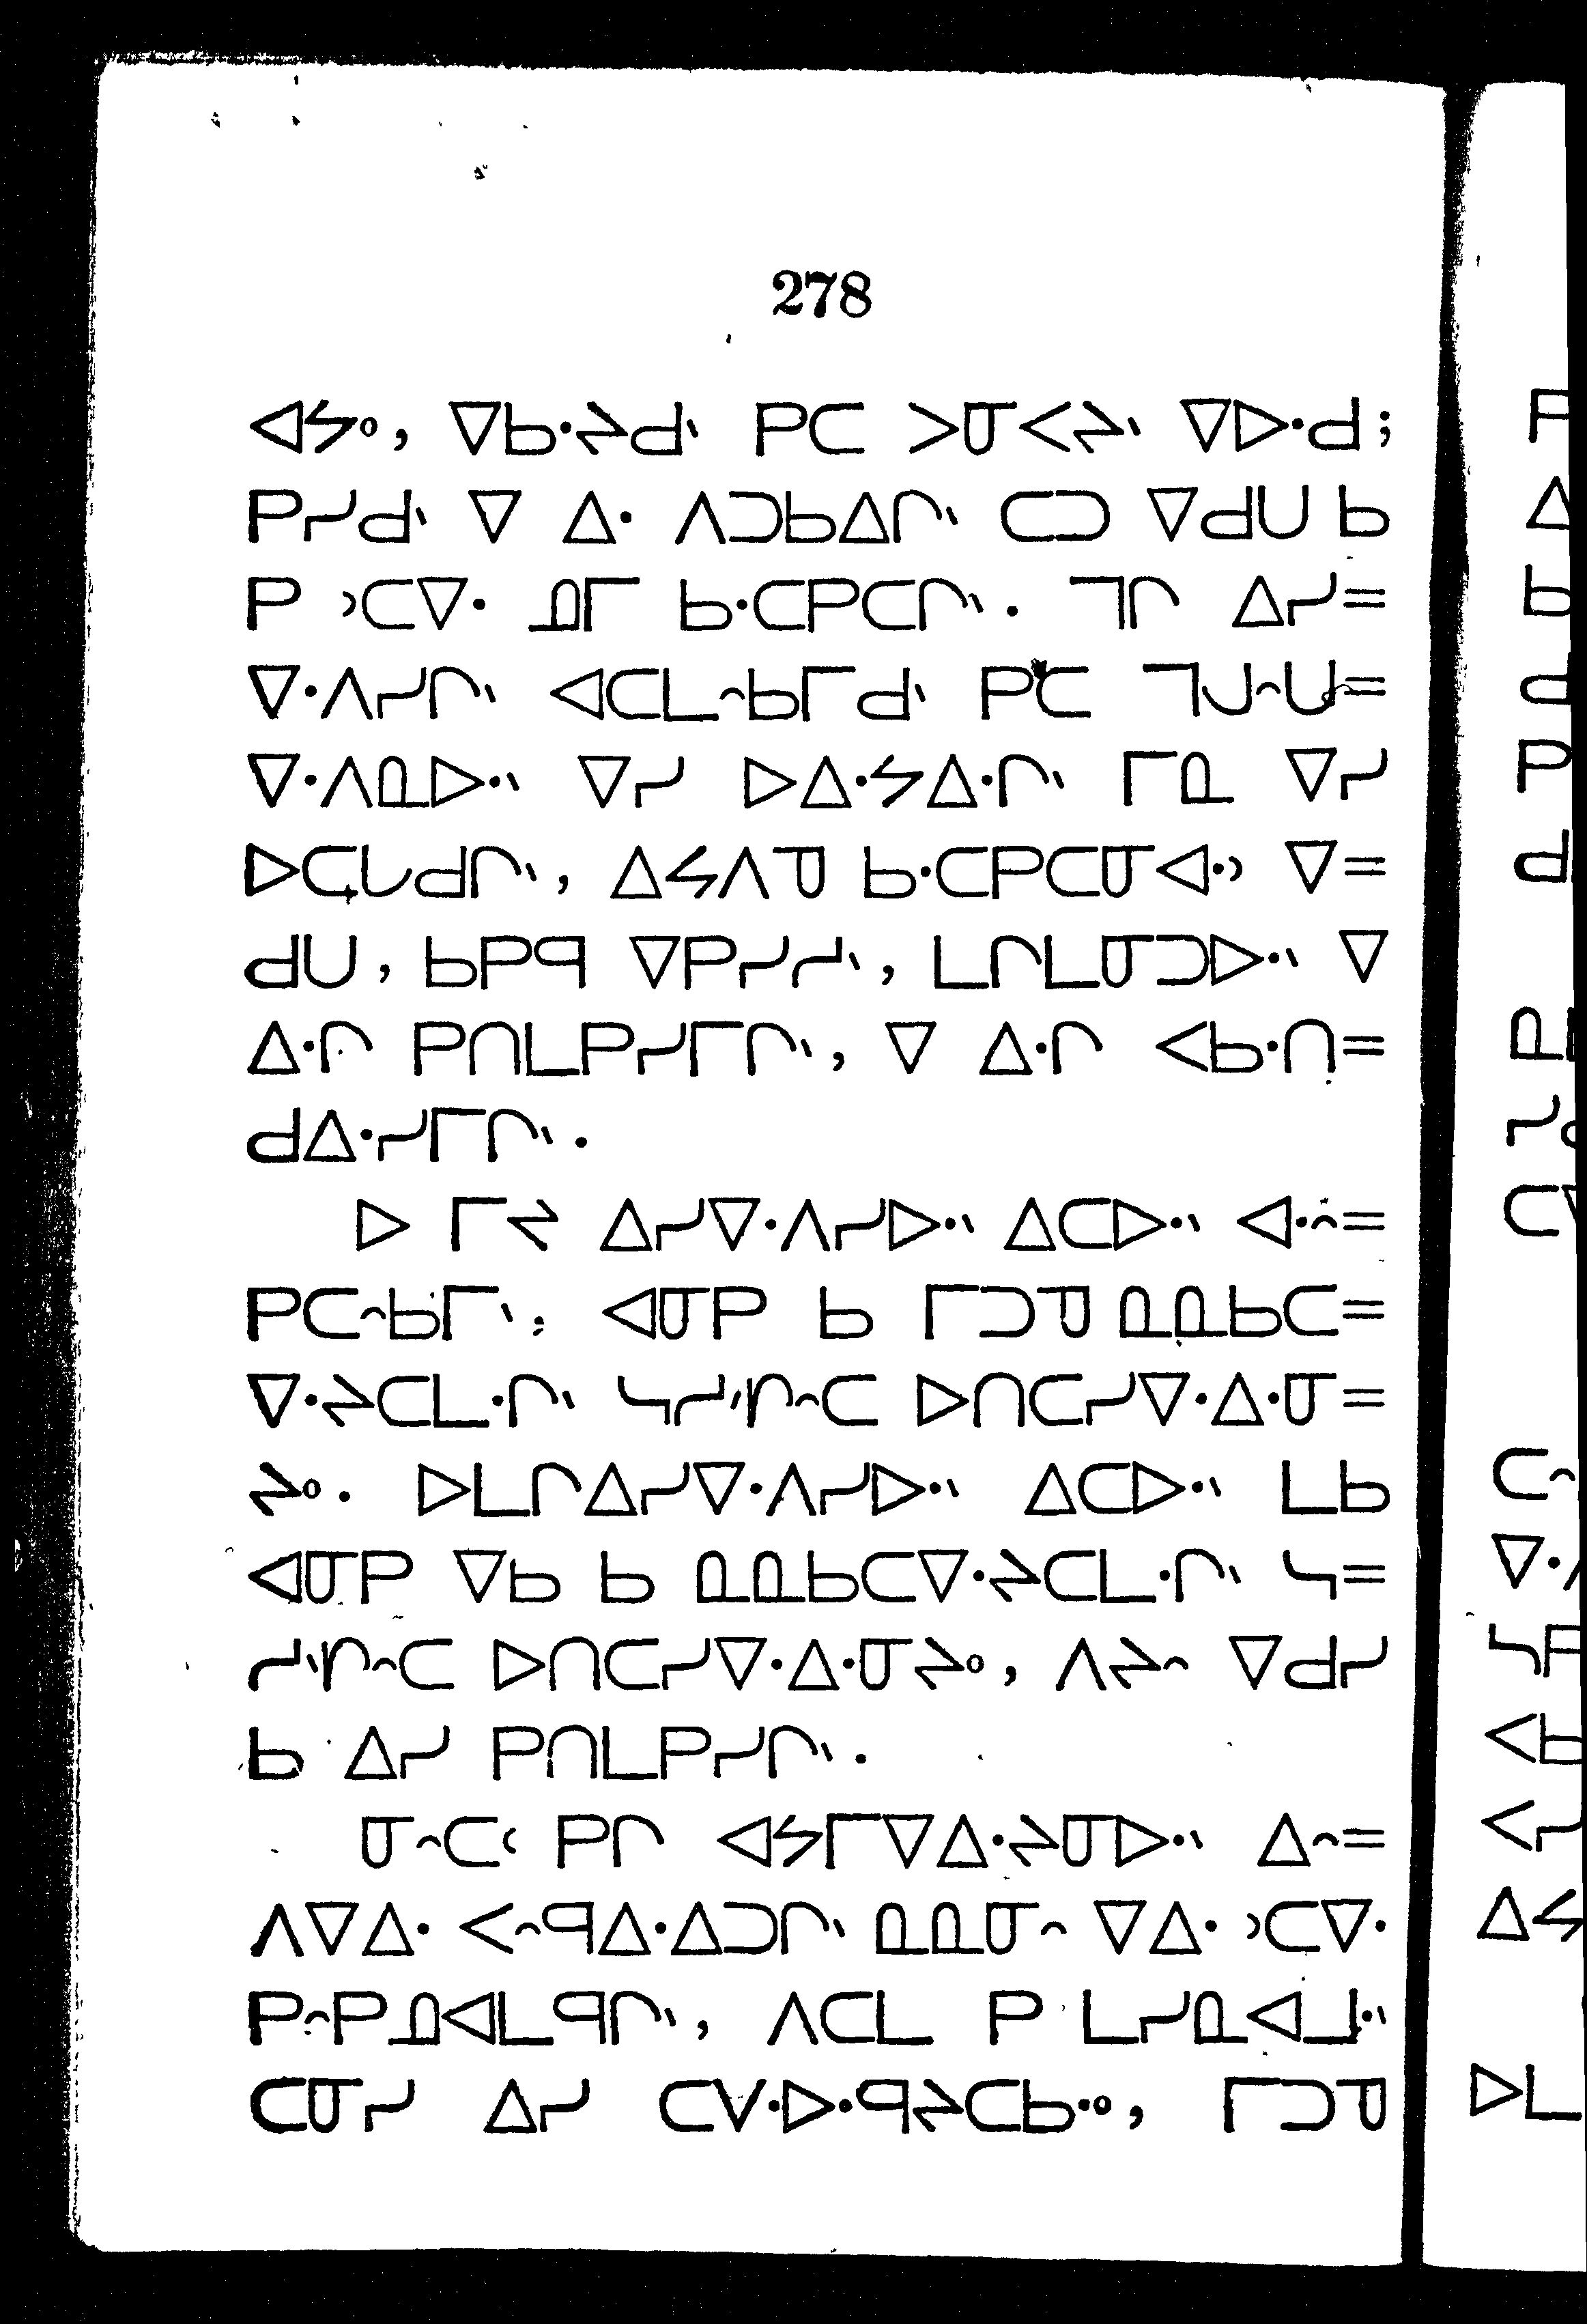 278
ᐊᔕᐤ, ᐁᑲᐧᔨᑯᐠ ᑭᑕ ᐳᓂᐸᔨᐠ ᐁᐅᐧᑯ;
ᑭᓯᑯᐠ ᐁ ᐃᐧ ᐱᑐᑲᐃᒋᐠ ᑕᑐ ᐁᑯᑌ ᑲ
ᑭ ᐣᑕᐁᐧ ᓄᒥ ᑲᐧᑕᑭᑕᒋᐠ. ᒣᒋ ᐃᓯ=
ᐁᐧᐱᓯᒋᐠ ᐊᑕᒪᐢᑲᒥᑯᐠ ᑭᑕ ᒣᒍᐢᑌ=
ᐁᐧᐱᓇᐅᐧᐠ ᐁᓯ ᐅᐃᐧᔕᐃᐧᒋᐠ ᒥᓇ ᐁᓯ
ᐅᑕᒐᑯᒋᐠ, ᐃᔕᐱᓀ ᑲᐧᑕᑭᑕᓂᐊᐧᐣ ᐁ=
ᑯᑌ, ᑲᑭᑫ ᐁᑭᓯᓱᐠ, ᒪᒋᒪᓂᑐᐅᐧᐠ ᐁ
ᐃᐧᒋ ᑭᑎᒪᑭᓯᒥᒋᐠ, ᐁ ᐃᐧᒋ ᐸᑲᐧᑎ=
ᑯᐃᐧᓯᒥᒋᐠ.
ᐅ ᒥᔪ ᐃᓯᐁᐧᐱᓯᐅᐧᐠ ᐃᑕᐅᐧᐠ ᐊᐧᐢ=
ᑭᑕᐢᑲᒥᐠ; ᐊᓂᑭ ᑲ ᒥᑐᓀ ᓇᓇᑲᑕ=
ᐁᐧᔨᑕᒪᐧᒋᐠ ᓭᓱᐠᒋᐢᑕ ᐅᑎᑕᓯᐁᐧᐃᐧᓂ=
ᔨᐤ. ᐅᒪᒋᐃᓯᐁᐧᐱᓯᐅᐧᐠ ᐃᑕᐅᐧᐠ ᒪᑲ
ᐊᓂᑭ ᐁᑲ ᑲ ᓇᓇᑲᑕᐁᐧᔨᑕᒪᐧᒋᐠ ᓭ=
ᓱᐠᒋᐢᑕ ᐅᑎᑕᓯᐁᐧᐃᐧᓂᔨᐤ, ᐱᔨᐢ ᐁᑯᓯ
ᑲ ᐃᓯ ᑭᑎᒪᑭᓯᒋᐠ.
ᓂᐢᑕᑦ ᑭᒋ ᐊᔕᒥᐁᐃᐧᔨᓂᐅᐧᐠ ᐃᐢ=
ᐱᐁᐃᐧ ᐸᐢᑫᐃᐧᐃᑐᒋᐠ ᓇᓇᓂᐢ ᐁᐃᐧ ᐣᑕᐁᐧ
ᑭᐢᑭᓄᐊᒪᑫᒋᐠ, ᐱᑕᒪ ᑭ ᒪᓯᓇᐊᒧᐧᐠ
ᑕᓂᓯ ᐃᓯ ᑕᐯᐧᐅᐧᑫᔨᑕᑲᐧᐤ, ᒥᑐᓀ